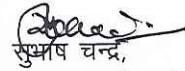 सुभाष चन्द्र,